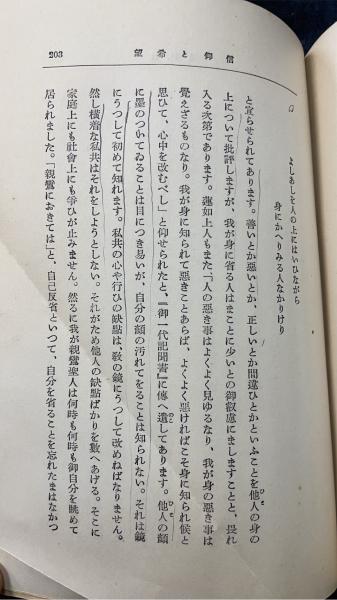 信仰と希望
203
よしあしを人の上にはいひながら
身にかへりみる人なかりけり
と宣らせられてあります。善いとか惡いとか、正しいとか間違ひとかといふことを他人の身の
上について批評しますが、我が身に省る人はまことに少いとの御叡慮にましますことと、畏れ
入る次第であります。蓮如上人もまた「人の惡き事はよくよく見ゆるなり、我が身の惡き事は
覺えざるものなり。我が身に知られて惡きことあらば、よくよく惡ければこそ身に知られ候と
思ひて、心中を改むべし」と仰せられたと、『御一代記聞書』に傳へ遺してあります。他人の顏
に墨のついてゐることは目につき易いが、自分の顏の汚れてをることは知られない。それは鏡
にうつして初めて知れます。私共の心や行ひの缺點は、敎の鏡にうつして改めねばなりません。
然し橫着な私共はそれをしようとしない。それがため他人の缺點ばかりを數へあげる。そこに
家庭上にも社會上にも爭ひが止みません。然るに我が親鸞聖人は何時も何時も御自分を眺めて
居られました。「親鸞におきては」と、自己反省といつて、自分を省ることを忘れたまはなかつ